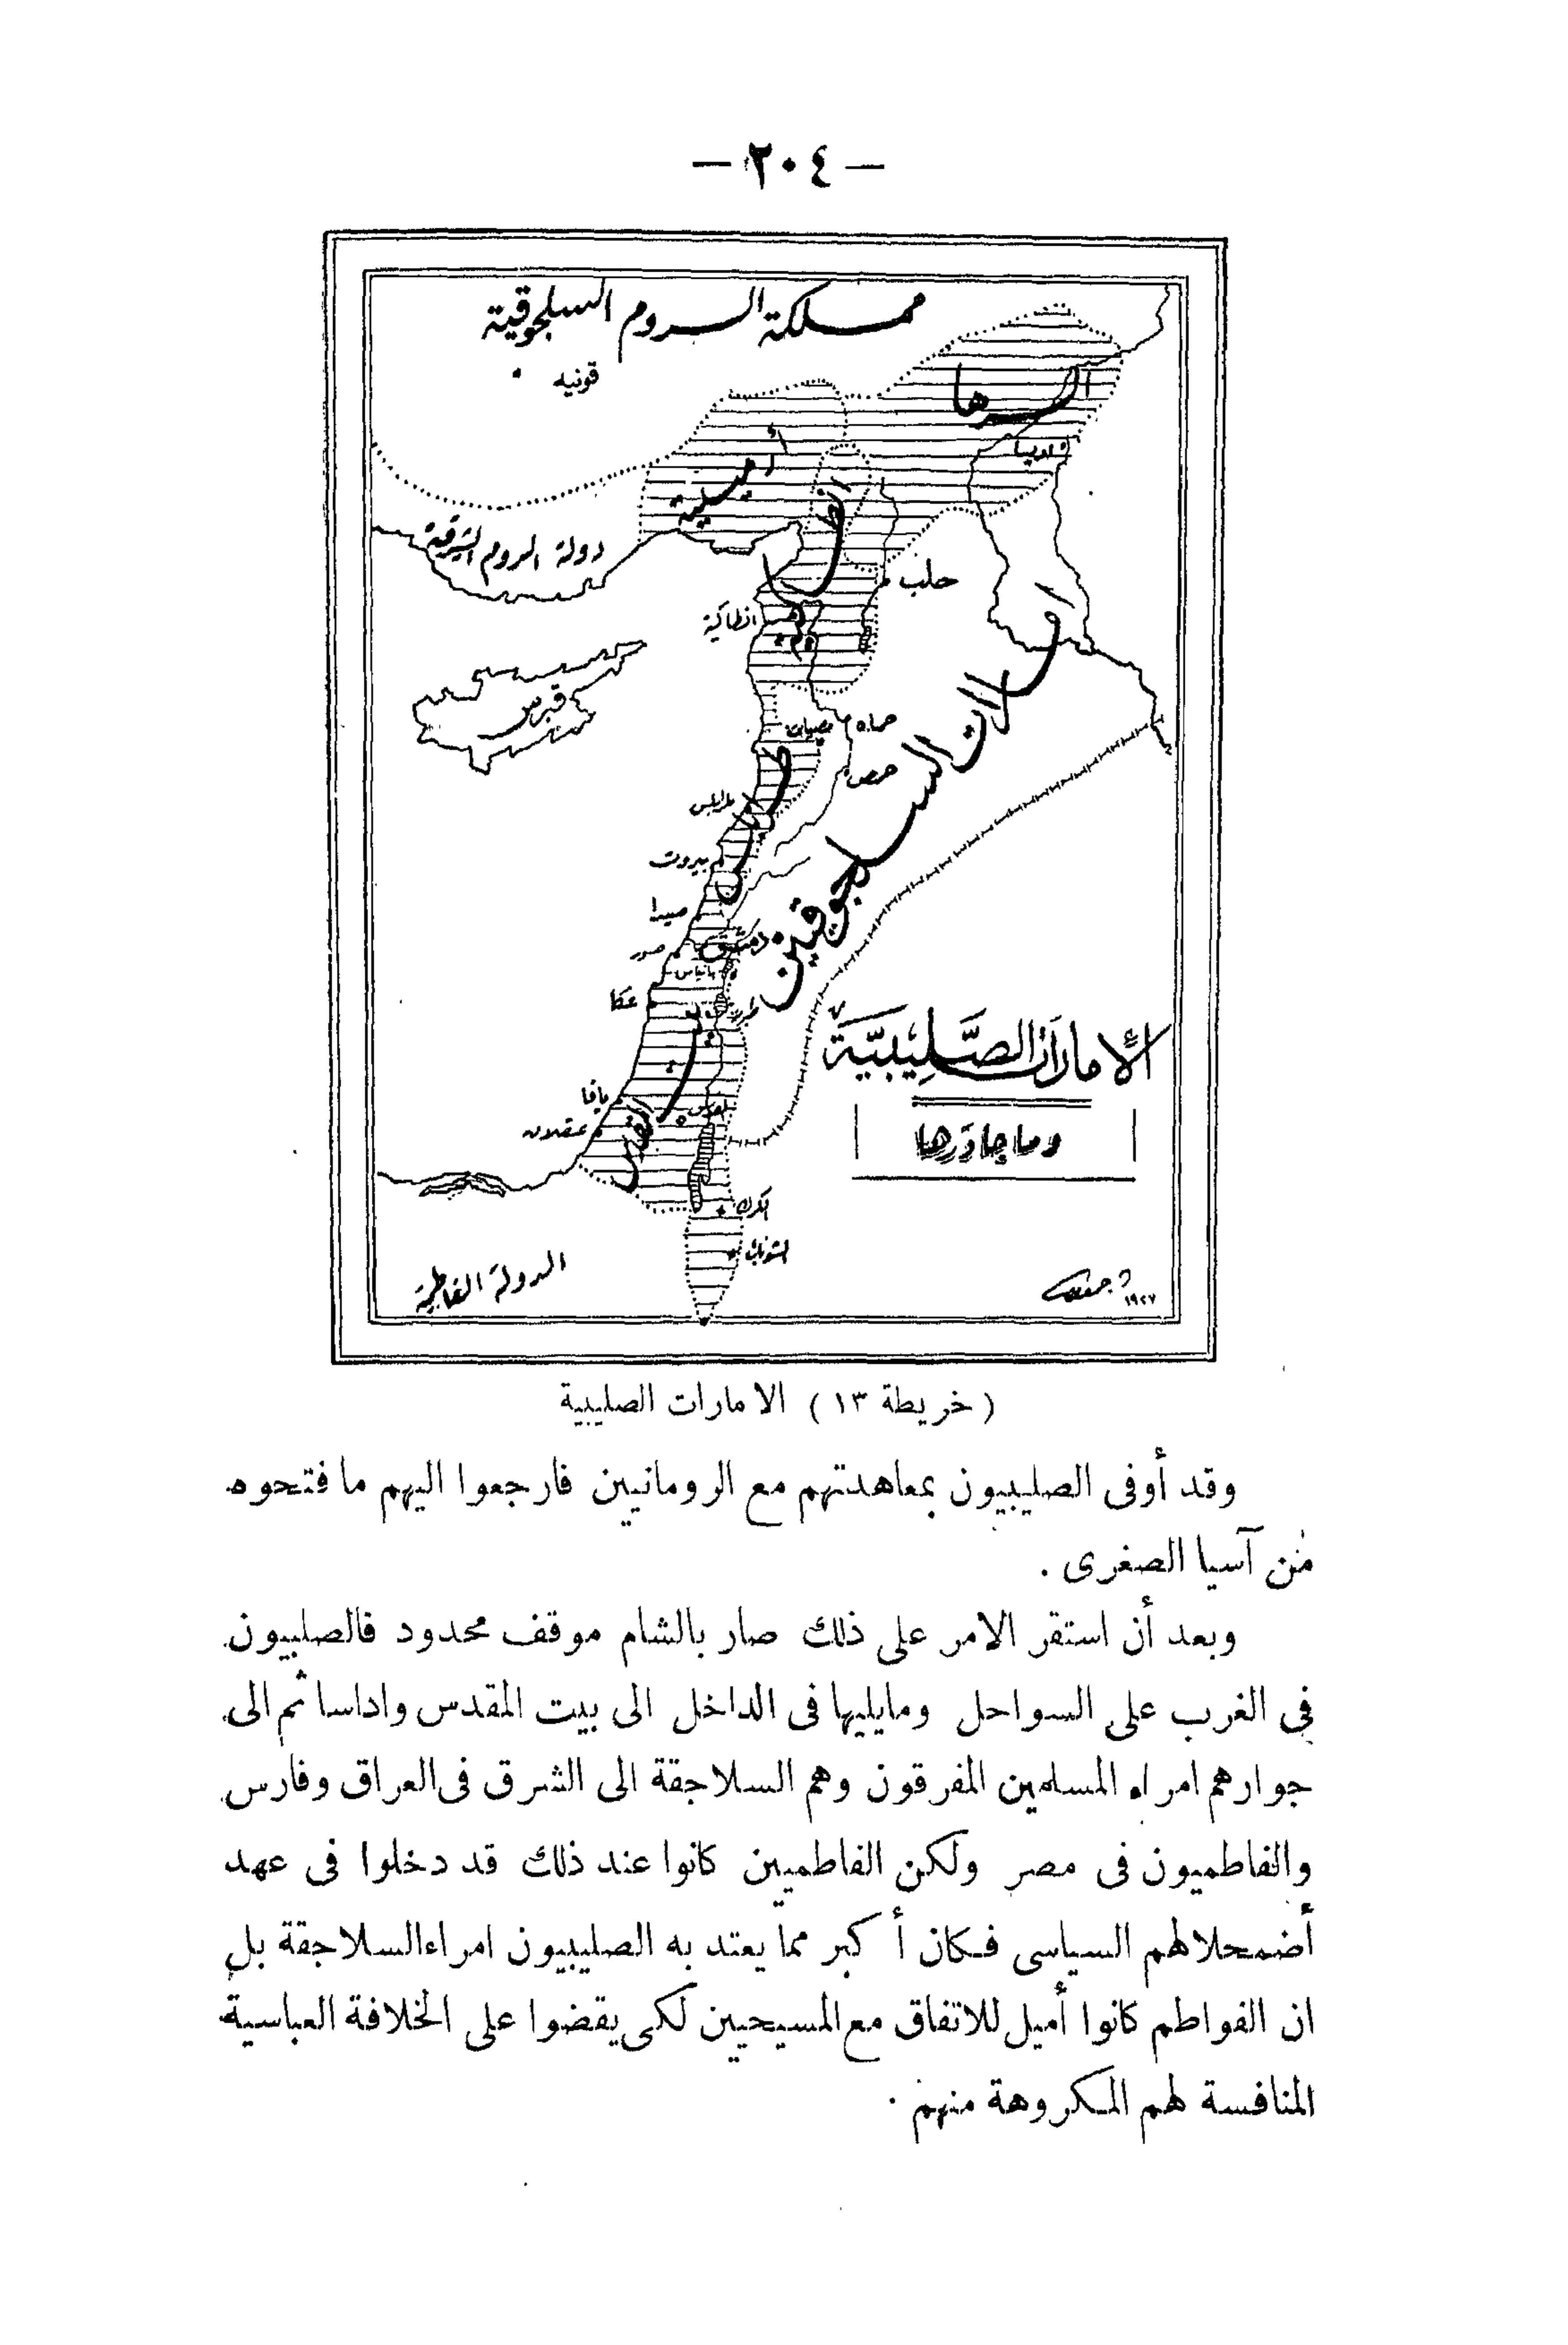 — ٢٠٤ —
مملكة الروم السلجوقية
قونيه
الرها
أرمينية
دولة الروم الشرقية
حلب
انطاكية
قبرس
حماه
حمص
طرابلس
بيروت
صيدا
دمشق
صور
بانياس
عكا
ولايات السلجوقيين
الإمارات الصَّليبيَّة
وما جاورها
يافا
القدس
عسقلان
القدس
الكرك
الشوبك
الدولة الفاطمية
١٩٢٧
( خريطة ١٣ ) الامارات الصليبية
وقد أوفى الصليبيون بمعاهدتهم مع الرومانيين فارجعوا اليهم ما فتحوه
من آسيا الصغرى .
وبعد أن استقر الامر على ذلك صار بالشام موقف محدود فالصليبيون
فى الغرب على السواحل ومايليها فى الداخل الى بيت المقدس واداسا ثم الى
جوارهم امراء المسلمين المفرقون وهم السلاجقة الى الشرق فى العراق وفارس
والفاطميون فى مصر ولكن الفاطميين كانوا عند ذلك قد دخلوا فى عهد
أضمحلالهم السياسى فكان أكبر مما يعتد به الصليبيون امراء السلاجقة بل
ان الفواطم كانوا أميل للاتفاق مع المسيحيين لكى يقضوا على الخلافة العباسية
المنافسة لهم المكروهة منهم .